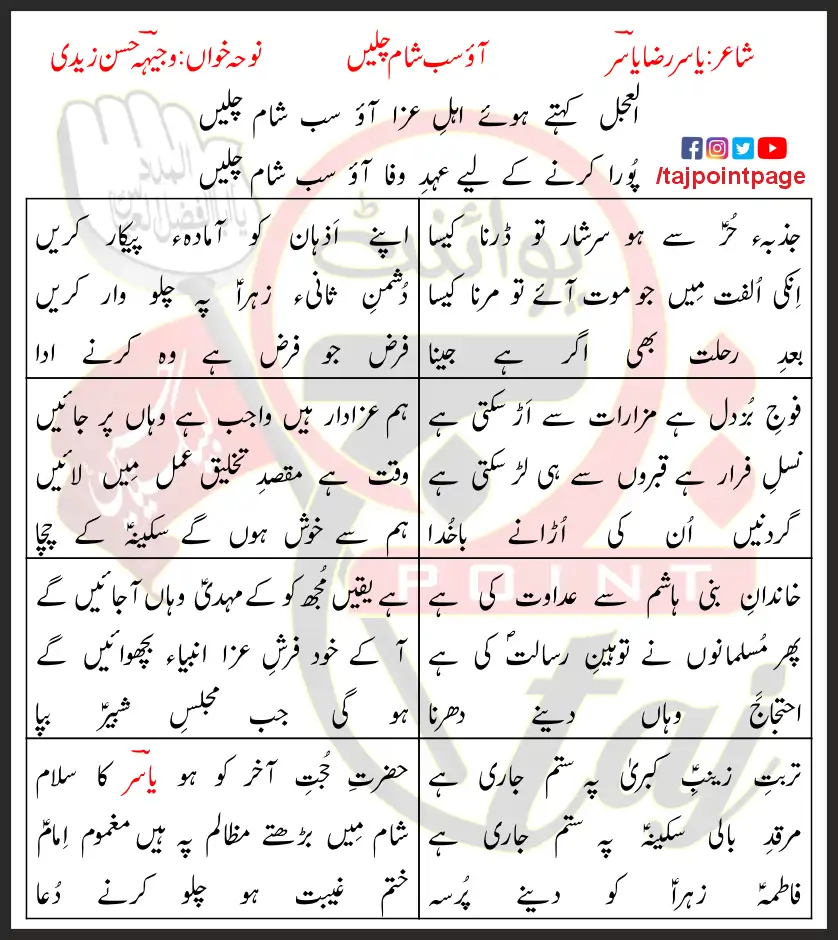 شاعر: یاسر رضا یاسرؔ آؤ سب شام چلیں نوحہ خواں: وجیہہ حسن زیدی
العجل کہتے ہوئے اہلِ عزا آؤ سب شام چلیں
پُورا کرنے کے لیے عہدِ وفا آؤ سب شام چلیں
/tajpointpage
جذبہء حُرؑ سے ہو سرشار تو ڈرنا کیسا
اِنکی اُلفت مِیں جو موت آئے تو مرنا کیسا
بعدِ رحلت بھی اگر ہے جینا
اپنے اَذہان کو آمادہء پیکار کریں
دُشمنِ ثانیء زہراؑ پہ چلو وار کریں
فرض جو فرض ہے وہ کرنے ادا
فوجِ بُزدل ہے مزارات سے اَڑ سکتی ہے
نسلِ فرار ہے قبروں سے ہی لڑ سکتی ہے
گردنیں اُن کی اُڑانے باخُدا
ہم عزادار ہیں واجب ہے وہاں پر جائیں
وقت ہے مقصدِ تخلیق عمل مِیں لائیں
ہم سے خوش ہوں گے سکینہؑ کے چچا
خاندانِ بنی ہاشم سے عداوت کی ہے
پھر مُسلمانوں نے توہینِ رسالتؐ کی ہے
احتجاجََ وہاں دینے دھرنا
ہے یقیں مُجھ کو کے مہدیؑ وہاں آجائیں گے
آ کے خود فرشِ عزا انبیاء بچھوائیں گے
ہو گی جب مجلسِ شبیرؑ بپا
تربتِ زینبِؑ کبریٰ پہ ستم جاری ہے
مرقدِ بالی سکینہؑ پہ ستم جاری ہے
فاطمہؑ زہراؑ کو دینے پُرسہ
حضرتِ حُجتِ آخر کو ہو یاسرؔ کا سلام
شام مِیں بڑھتے مظالم پہ ہیں مغموم اِمامؑ
ختم غیبت ہو چلو کرنے دُعا
پوائنٹ
تاج
POINT
taj